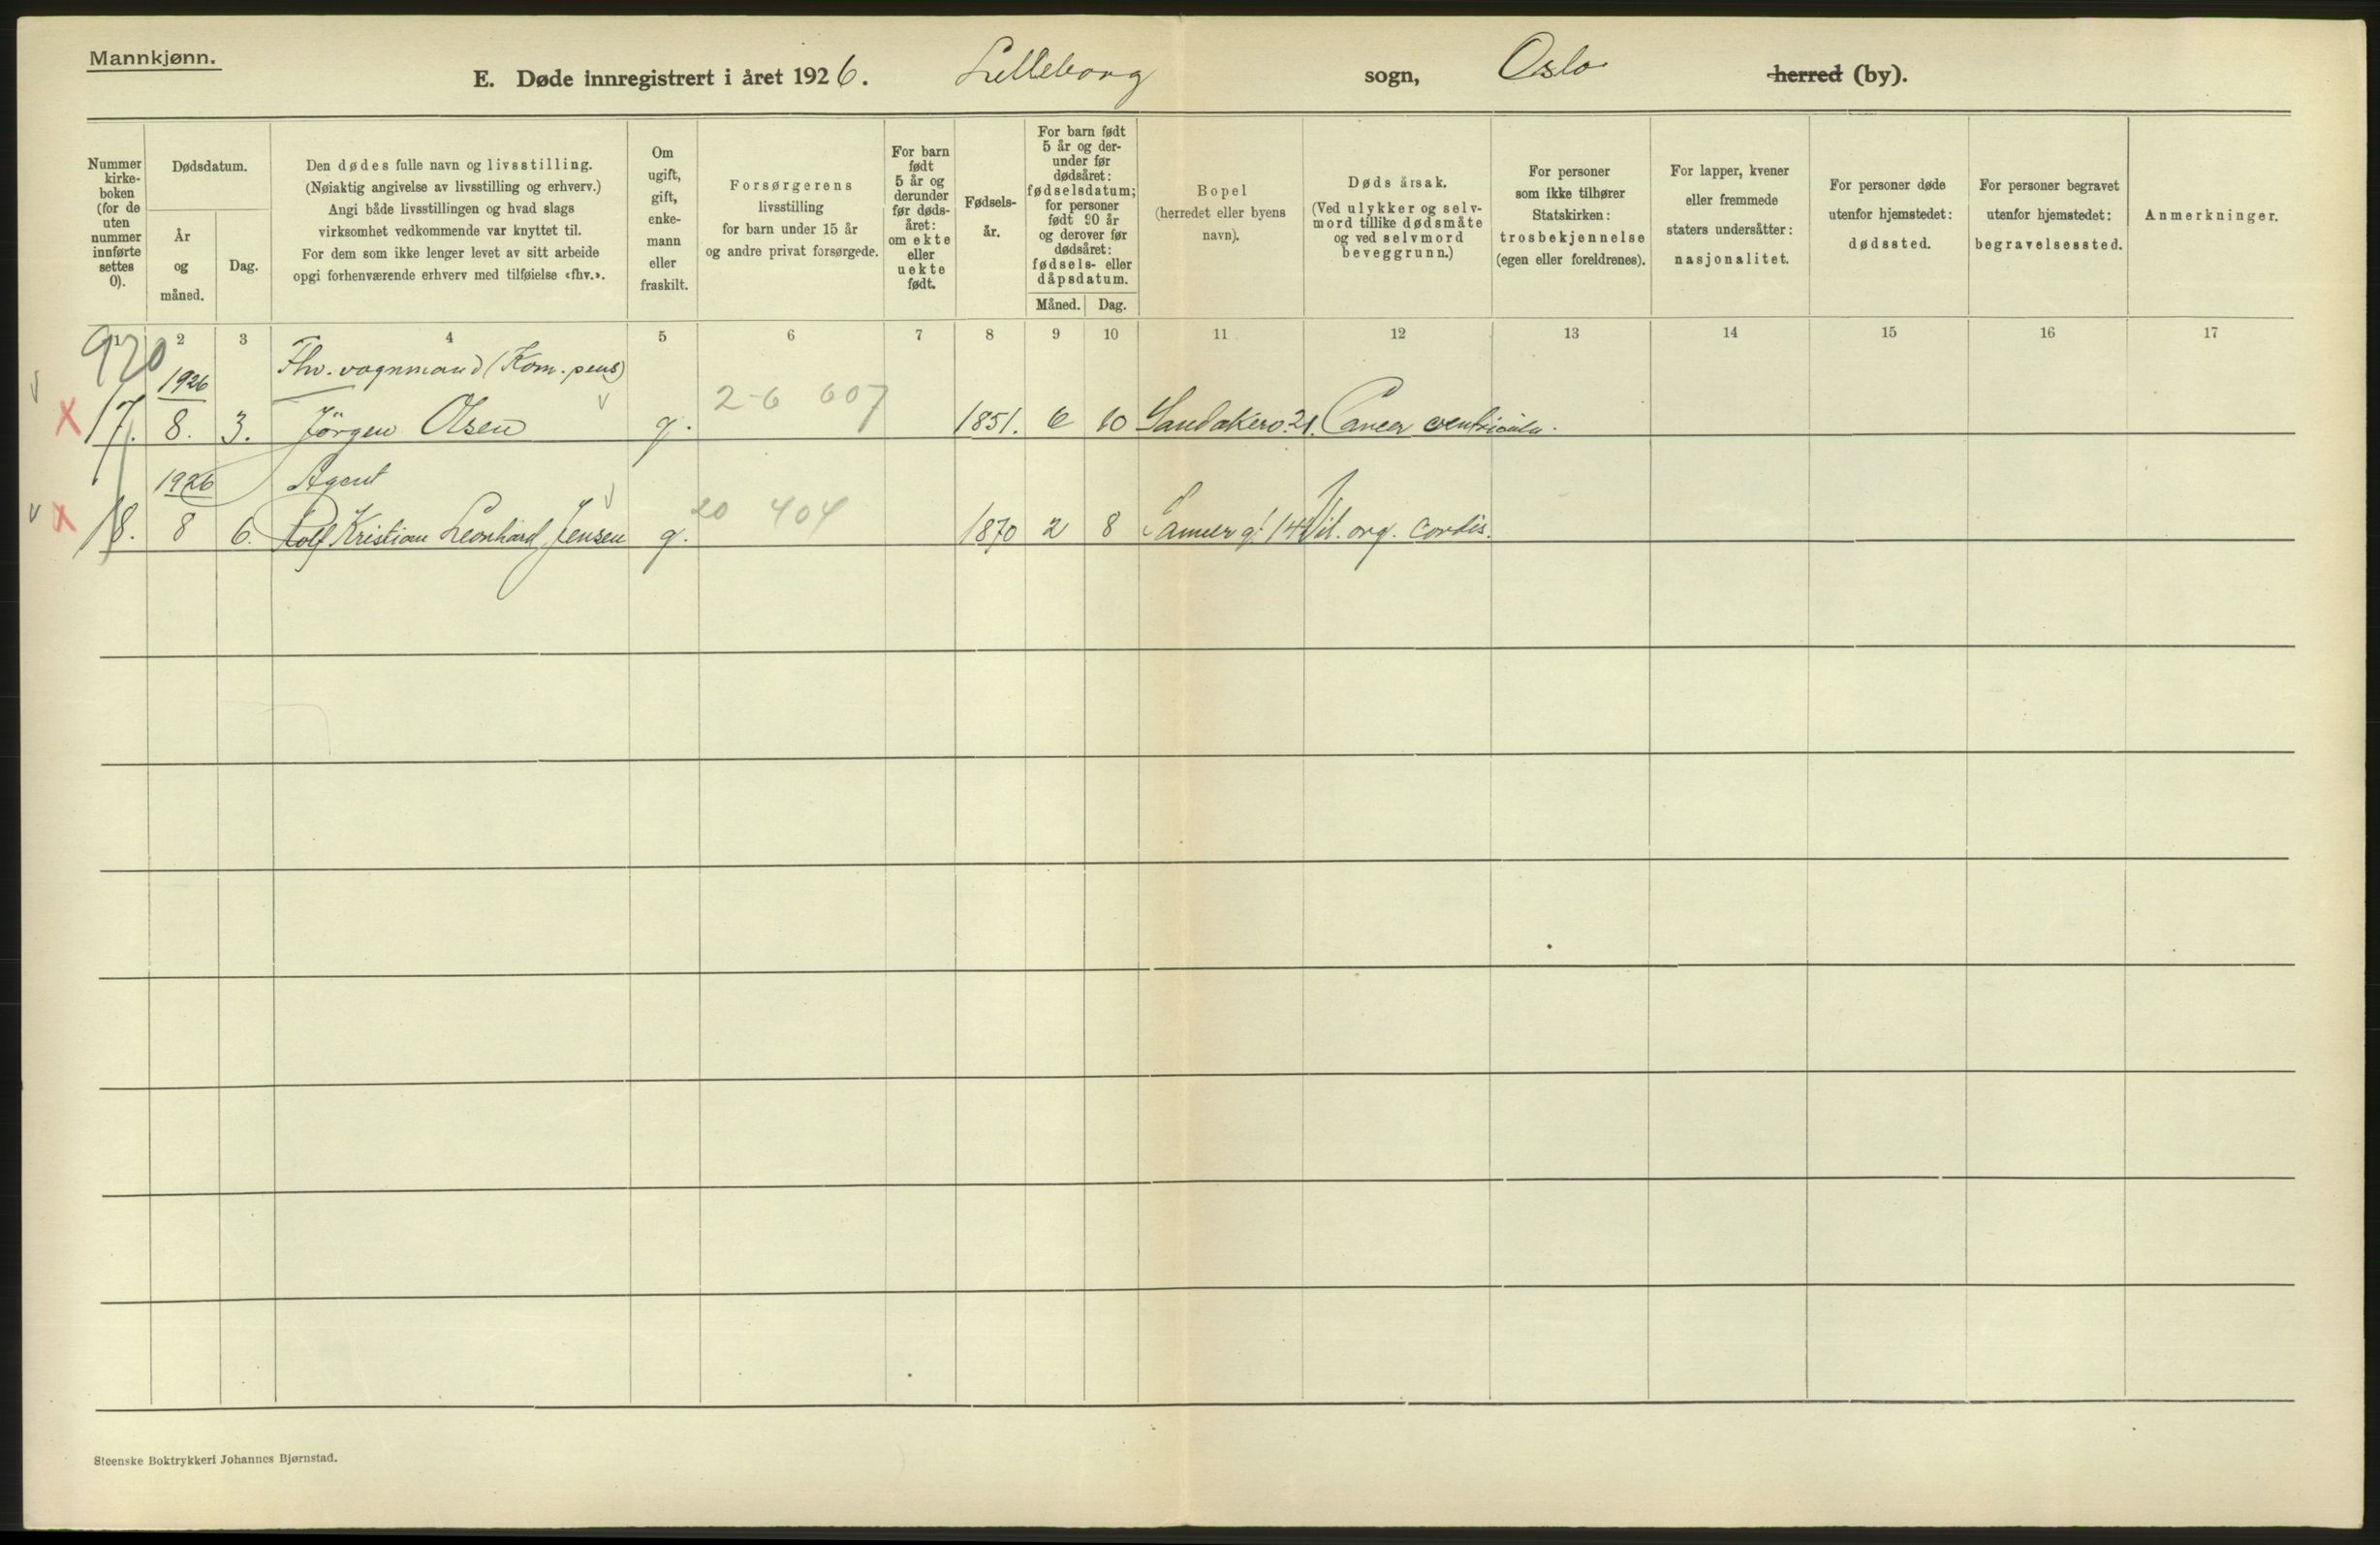 Mannkjønn.
E. Døde innregistrert i året 1926. Lilleborg sogn, Oslo herred (by).
Nummer kirkeboken (for de uten nummer innførte settes 0).
Dødsdatum.
År og måned.
Dag.
Den dødes fulle navn og livsstilling.
(Nøiaktig angivelse av livsstilling og erhverv.)
Angi både livsstillingen og hvad slags
virksomhet vedkommende var knyttet til.
For dem som ikke lenger levet av sitt arbeide
opgi forhenværende erhverv med tilføielse «fhv.».
Om ugift, gift, enkemann eller fraskilt.
Forsørgerens
livsstilling
for barn under 15 år
og andre privat forsørgede.
For barn født 5 år og derunder før dødsåret: om ekte eller uekte født.
Fødselsår.
For barn født 5 år og derunder før dødsåret: fødselsdatum; for personer født 90 år og derover før dødsåret: fødsels- eller dåpsdatum.
Måned. Dag.
Bopel
(herredet eller byens
navn).
Dødsårsak.
(Ved ulykker og selvmord tillike dødsmåte og ved selvmord beveggrunn.)
For personer
som ikke tilhører
Statskirken:
trosbekjennelse
(egen eller foreldrenes).
For lapper, kvener
eller fremmede
staters undersåtter:
nasjonalitet.
For personer døde
utenfor hjemstedet:
dødssted.
For personer begravet
utenfor hjemstedet:
begravelsessted.
Anmerkninger.
1 2 3 4 5 6 7 8 9 10 11 12 13 14 15 16 17
920
1926 Fhv. vognmand (Kom. pens)
x 17. 8. 3. Jörgen Olsen g. 2-6 607 1851. 6 10 Sandakerv. 21. Cancer ventriculi.
1926 Agent
x 18. 8 6. Rolf Kristian Leonhard Jensen g. 20 404 1870 2 8 Sannerg. 14 Vit. org. cordis.
Steenske Boktrykkeri Johannes Bjørnstad.